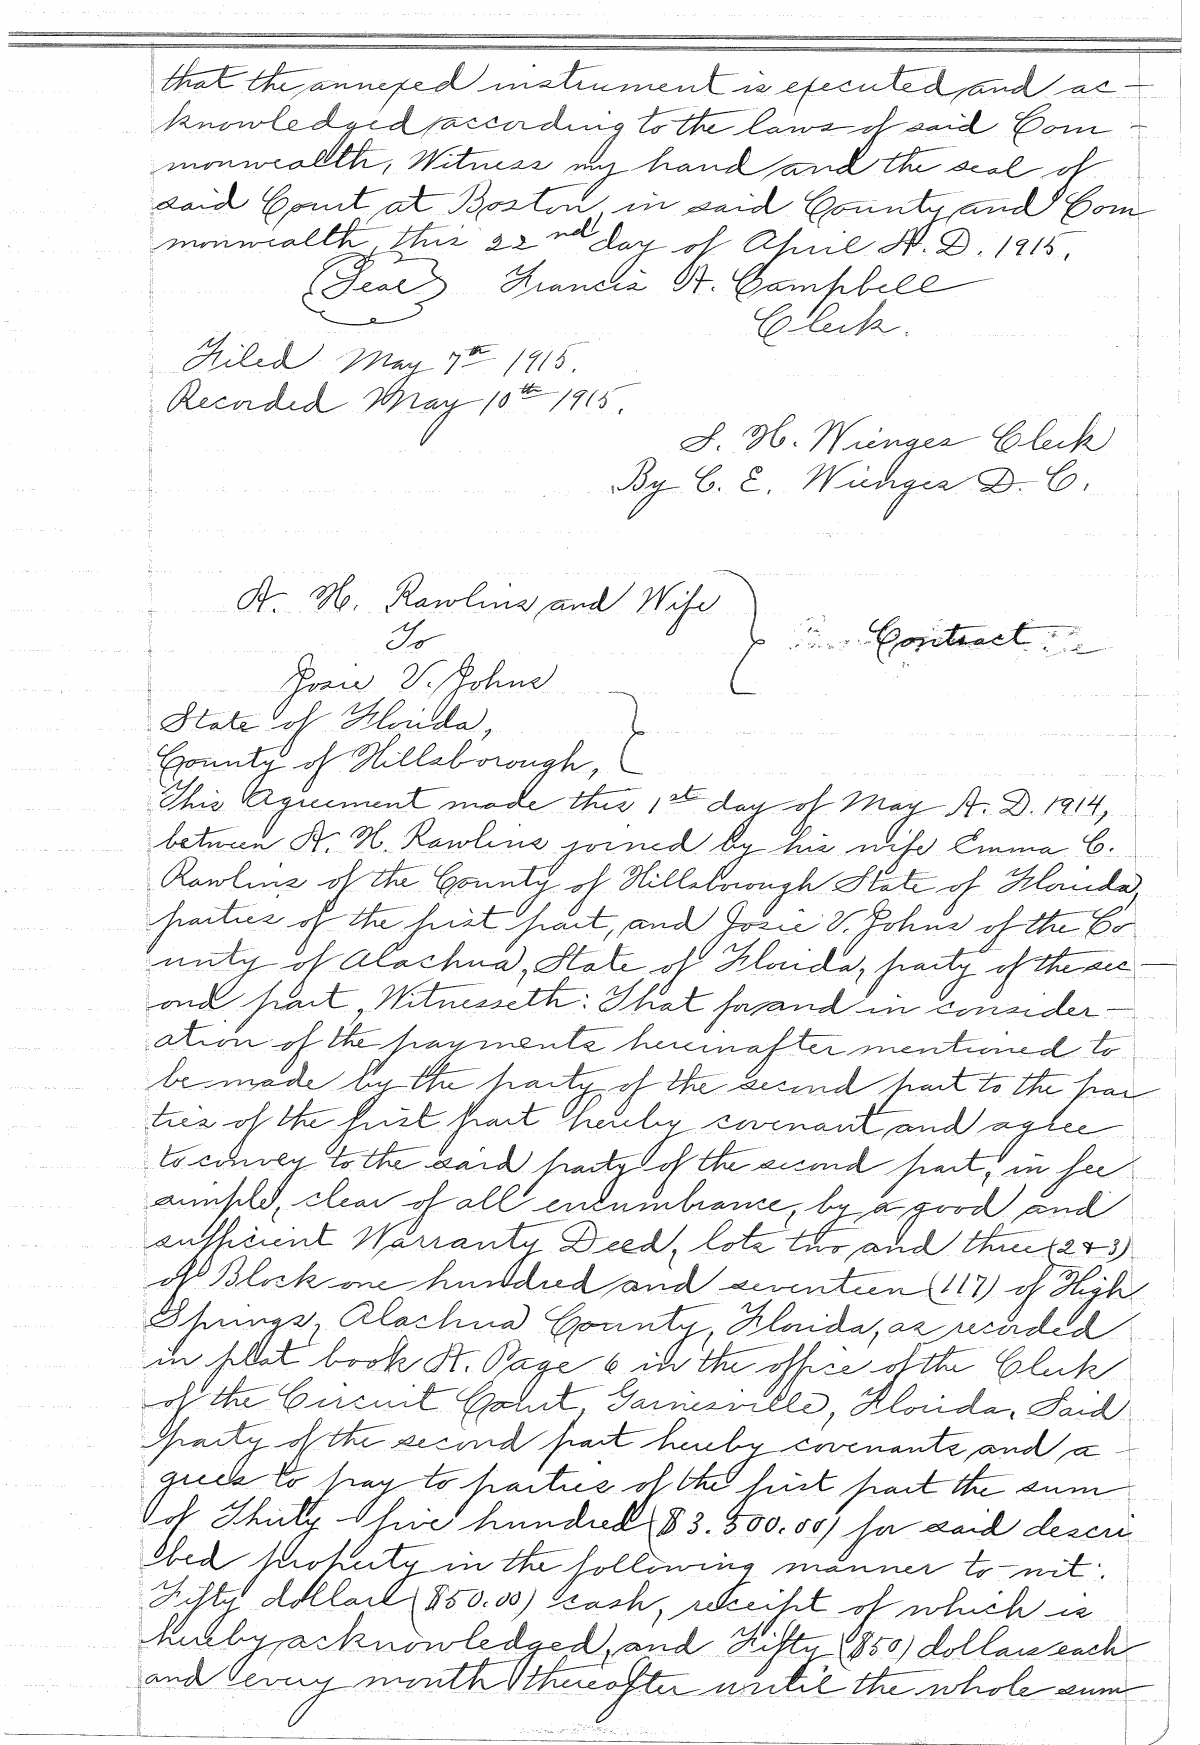 that the annexed instrument is executed and ac-
knowledged according to the laws of said Com-
monwealth, Witness my hand and the seal of
said Court at Boston, in said County and Com
monwealth, this 22nd day of April A. D. 1915,
(Seal) Francis A. Campbell
Clerk.
Filed May 7th 1915.
Recorded May 10th 1915.
S. H. Wienges Clerk
By C. E. Wienges D. C.
A. H. Rawlins and Wife
To
Contract
Josie V. Johns
State of Florida,
County of Hillsborough,
This Agreement made this 1st day of May A. D. 1914,
between A. H. Rawlins joined by his wife Emma C.
Rawlins of the County of Hillsborough State of Florida,
parties of the first part, and Josie V. Johns of the Co
unty of Alachua, State of Florida, party of the sec-
ond part, Witnesseth: That for and in consider-
ation of the payments hereinafter mentioned to
be made by the party of the second part to the par
ties of the first part hereby covenant and agree
to convey to the said party of the second part, in fee
simple, clear of all encumbrance, by a good and
sufficient Warranty Deed, lots two and three (2 & 3)
of Block one hundred and seventeen (117) of High
Springs, Alachua County, Florida, as recorded
in plat book A. Page 6 in the office of the Clerk
of the Circuit Court, Gainesville, Florida. Said
party of the second part hereby covenants and a-
grees to pay to parties of the first part the sum
of Thirty-five hundred ($3.500.00) for said descri
bed property in the following manner to-wit:
Fifty dollars ($50.00) cash, receipt of which is
hereby acknowledged, and Fifty ($50) dollars each
and every month thereafter until the whole sum